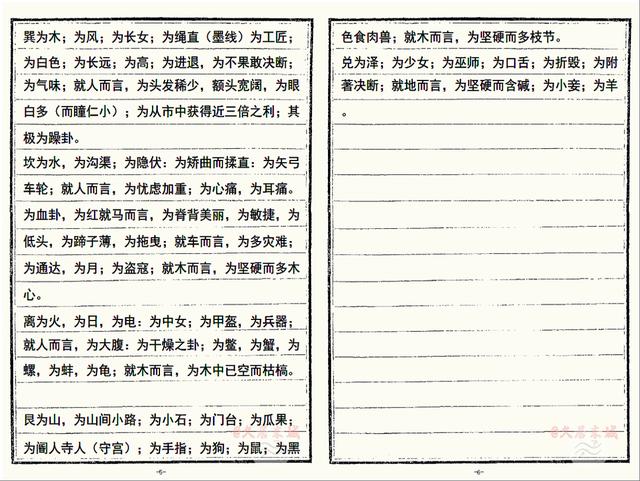 巽为木；为风；为长女；为绳直（墨线）为工匠；
为白色；为长远；为高；为进退，为不果敢决断；
为气味；就人而言，为头发稀少，额头宽阔，为眼
白多（而瞳仁小）；为从市中获得近三倍之利；其
极为躁卦。
坎为水，为沟渠；为隐伏：为矫曲而揉直：为矢弓
车轮；就人而言，为忧虑加重；为心痛，为耳痛。
为血卦，为红就马而言，为脊背美丽，为敏捷，为
低头，为蹄子薄，为拖曳；就车而言，为多灾难；
为通达，为月；为盗寇；就木而言，为坚硬而多木
心。
离为火，为日，为电：为中女；为甲盔，为兵器；
就人而言，为大腹：为干燥之卦；为鳖，为蟹，为
螺，为蚌，为龟；就木而言，为木中已空而枯槁。
艮为山，为山间小路；为小石；为门台；为瓜果；
为阍人寺人（守宫）；为手指；为狗；为鼠；为黑
-6-
色食肉兽；就木而言，为坚硬而多枝节。
兑为泽；为少女；为巫师；为口舌；为折毁；为附
著决断；就地而言，为坚硬而含碱；为小妾；为羊
。
-6-